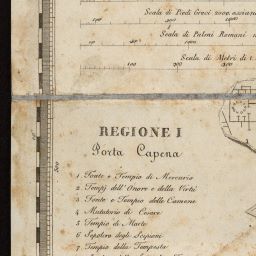 Scala di Piedi Greci 2000. assiano
100 200 400
Scala di Palmi Romani
Scala di Metri di
100 200 300
REGIONE I
Porta Capena
1. Fonte e Tempio di Mercurio
2. Tempj dell' Onore e della Virtù
3. Fonte e Tempio delle Camene
4. Mutatorio di Cesare
5. Tempio di Marte
6. Sepolcro degli Scipioni
7. Tempio della Tempesta